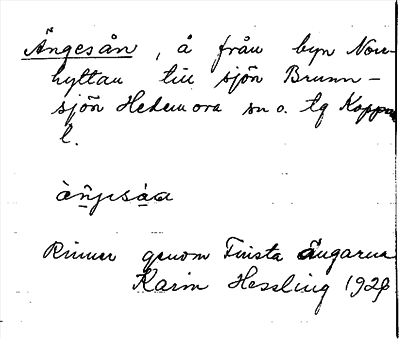 Ängesån, å från byn Norr-
hyttan till sjön Brunn-
sjön Hedemora sn o. tg Kopp
l.
Rinner genom Finsta ängarna
Karin Hessling 1928